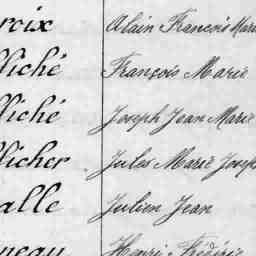 roix Alain François Marie
fliché François Marie
fliché Joseph Jean Marie
flicher Jules Marie Joseph
alle Julien Jean
neau Henri Frédéric